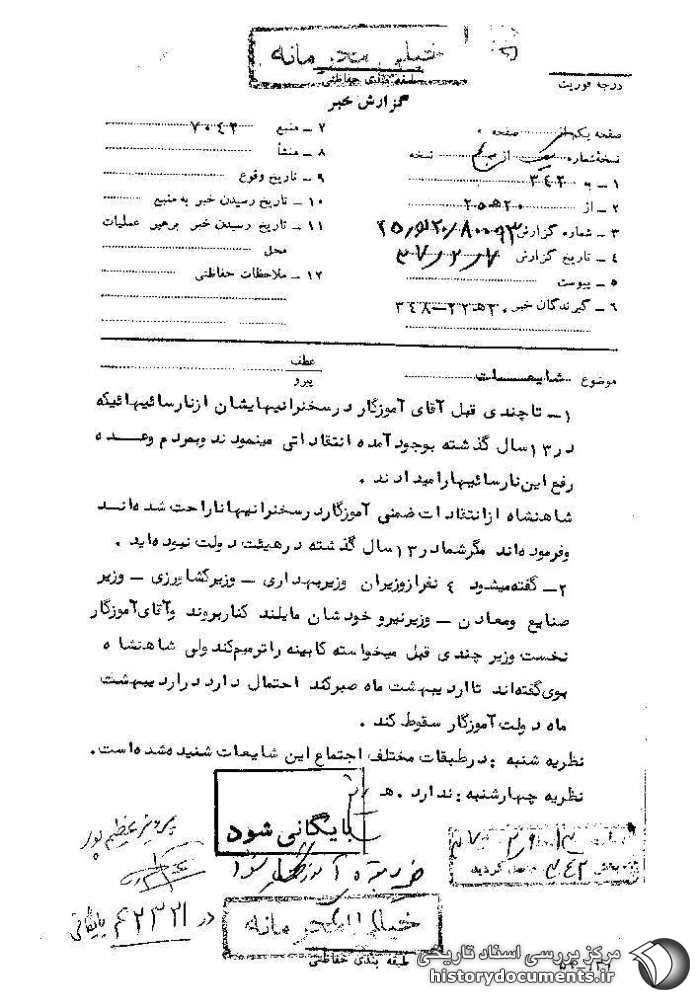 خیلی محرمانه
طبقه بندی حفاظتی
درجه فوریت
گزارش خبر
صفحه یکم از صفحه
نسخهٔ شماره از نسخه
۱ – به ۳۴۲
۲ – از ۲۰ﻫ۲۵
۳ – شماره گزارش
۴ – تاریخ گزارش ۳۷/۲/۷
۵ – پیوست
۶ – گیرندگان خبر ۳۰ﻫ۲۲–۳۴۸
۷ – منبع ۷۰۴۲
۸ – منشأ
۹ – تاریخ وقوع
۱۰ – تاریخ رسیدن خبر به منبع
۱۱ – تاریخ رسیدن خبر برهبر عملیات
محل
۱۲ – ملاحظات حفاظتی
موضوع شایعات
عطف
پیرو
۱– تاچندی قبل آقای آموزگار درسخنرانیهایشان ازنارسائیهائیکه
در۱۳سال گذشته بوجودآمده انتقاداتی مینمودند وبمردم وعده
رفع این نارسائیهارامیدادند .
شاهنشاه ازانتقادات ضمنی آموزگاردرسخنرانیهاناراحت شده‌اند
وفرموده‌اند مگرشمادر۱۳سال گذشته درهیئت دولت نبوده‌اید .
۲– گفته میشود ۴ نفرازوزیران وزیربهداری – وزیرکشاورزی – وزیر
صنایع ومعادن – وزیرنیرو خودشان مایلند کناربروند وآقای آموزگار
نخست وزیر چندی قبل میخواسته کابینه راترمیم‌کندولی شاهنشاه
بوی‌گفته‌اند تااردیبهشت ماه صبرکند احتمال دارد درارد‌یبهشت
ماه دولت آموزگار سقوط کند .
نظریه شنبه : درطبقات مختلف اجتماع این شایعات شنیده‌شده‌است.
نظریه چهارشنبه : ندارد . ﻫ
بایگانی شود
پرویز عظیم پور
آموزگار
در ۶۲۳۲۱ بایگانی
به بخش ۳۴۲ گردید
خیلی محرمانه
طبقه بندی حفاظتی
مرکز بررسی اسناد تاریخی
historydocuments.ir